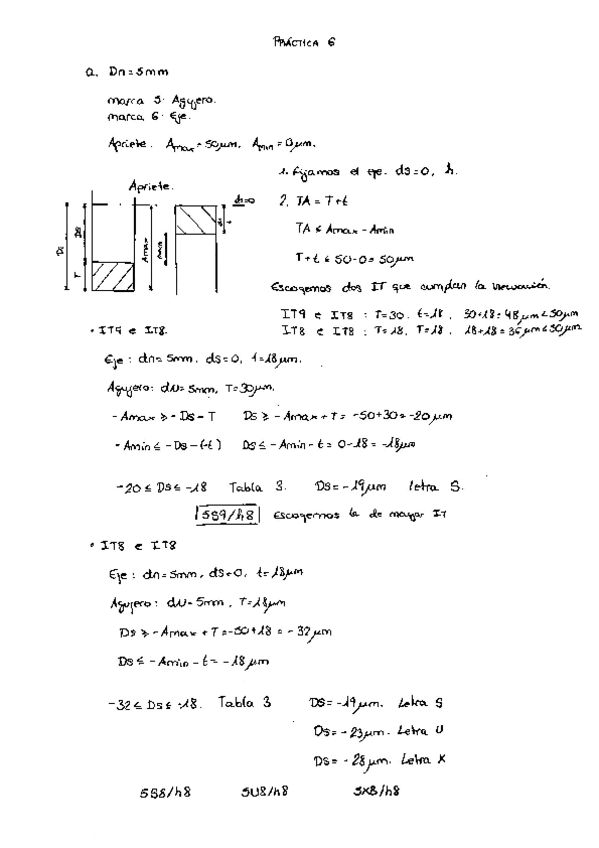 PRÁCTICA 6
a. Dn = 5mm
marca 5: Agujero.
marca 6: Eje.
Apriete. Amax = 50μm, Amin = 0μm.
1. Fijamos el eje. ds=0, h.
Apriete.
ds=0
Ds
DS
T
Amax
Amin
2. TA = T+t
TA ≤ Amax - Amin
T+t ≤ 50-0 = 50μm
Escogemos dos IT que cumplan la
IT9 e IT8 : T=30, t=18, 30+18=48μm<50μm
IT8 e IT8 : T=18, T=18, 18+18=36μm<50μm
• IT9 e IT8.
Eje : dn = 5mm, ds=0, t=18μm.
Agujero: dN= 5mm, T=30μm.
- Amax ≥ - Ds - T Ds ≥ - Amax + T = -50+30 = -20μm
- Amin ≤ - Ds - (-t) Ds ≤ - Amin - t = 0-18 = -18μm
-20 ≤ Ds ≤ -18 Tabla 3. Ds = -19μm letra S.
5S9/h8 Escogemos la de mayor IT
• IT8 e IT8
Eje : dn=5mm, ds=0, t=18μm
Agujero: dN=5mm, T=18μm
Ds ≥ - Amax + T = -50+18 = -32μm
Ds ≤ - Amin - t = -18μm
-32 ≤ Ds ≤ -18. Tabla 3 Ds = -19μm. Letra S
Ds = -23μm. Letra U
Ds = -28μm. Letra X
5S8/h8 5U8/h8 5X8/h8